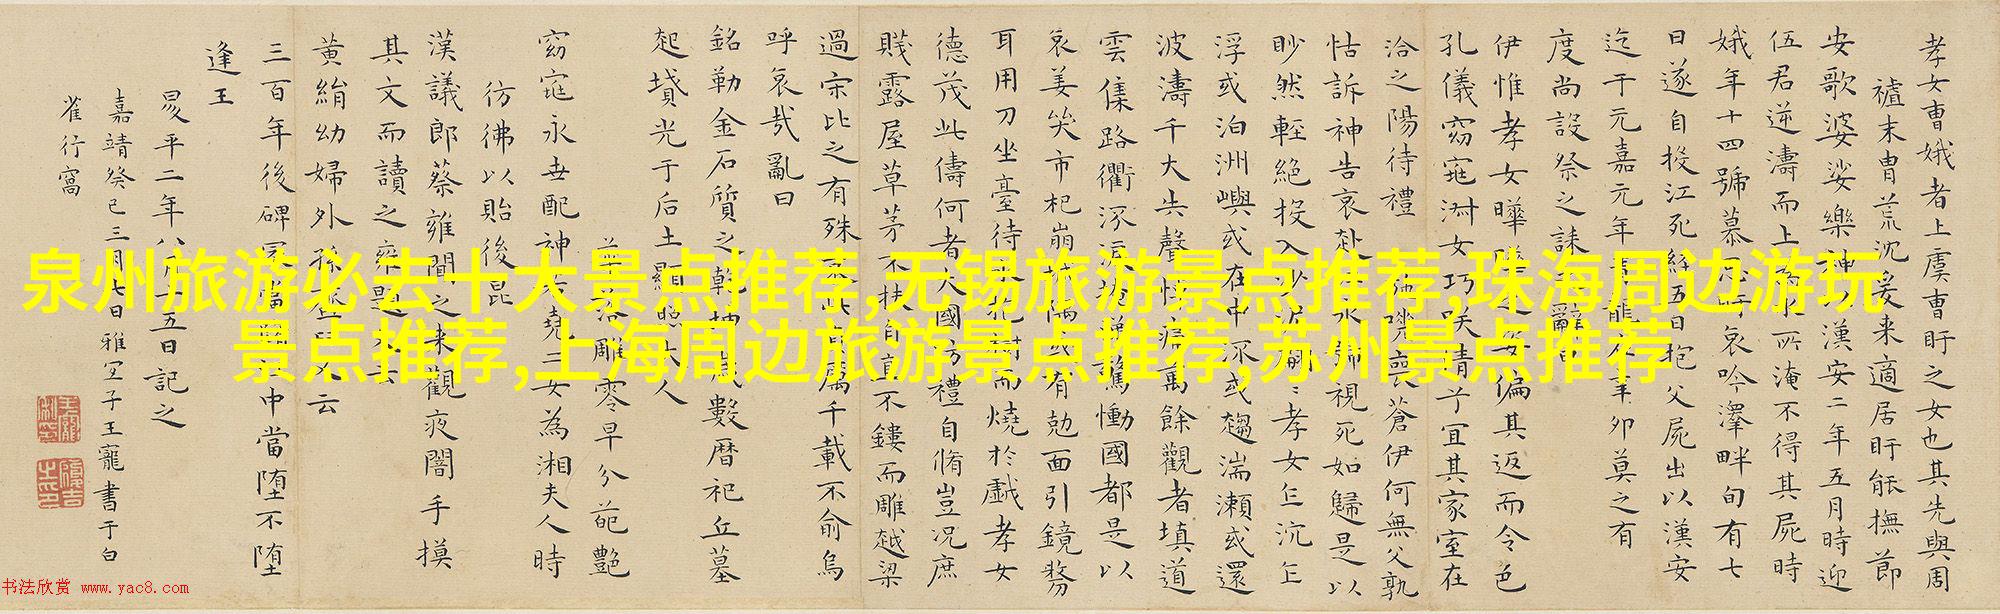 孝女曹娥者上虞曹盱之女也其先與周
末胄荒沉爰来適居盱能撫節
安歌婆娑樂神以漢安二年五月時迎
伍君逆濤而上為水所淹不得其屍時
娥年十四號慕思盱哀吟澤畔旬有七
日遂自投江死經五日抱父屍出以漢安
迄于元嘉元年青龍在辛卯莫之有
度尚設祭之誄之辭曰
伊惟孝女曄曄之姿偏其返而令色
孔儀窈窕淑女巧咲倩兮宜其家室在
洽之陽待禮未施嗟喪蒼伊何無父孰
怙訴神告哀赴江永號視死如歸是以
眇然輕絕投入沙泥翩翩孝女乍沉乍
浮或泊洲嶼或在中流或趨湍瀨或還
波濤千夫失聲悼痛萬餘觀者填道
雲集路衢流淚掩涕驚慟國都是以
哀姜哭市杞崩城隅或有尅面引鏡剺
耳用刀坐臺待水抱樹而燒於戲孝女
德茂此儔何者大國防禮自脩豈況庶
賤露屋草茅不扶自直不鏤而雕越梁
過宋比之有殊哀此貞厲千載不渝烏
呼哀哉亂曰
銘勒金石質之乾坤歲數曆祀丘墓
起墳光于后土顯照夫人
落雕零早分葩艷
窈窕永世配神若堯二女為湘夫人時
彷彿以貽後昆
漢議郎蔡雍聞之来觀夜闇手摸
其文而讀之雍題文云
黃絹幼婦外孫齏臼又云
三百年後碑冢當墮江中當墮不墮
逢王
昇平二年八月十五日記之
嘉靖癸巳三月七日雅宜子王寵書于白
雀行窩
泉州旅游必去十大景点推荐,无锡旅游景点推荐,珠海周边游玩
景点推荐,上海周边旅游景点推荐,苏州景点推荐
书法欣赏 www.yac8.com